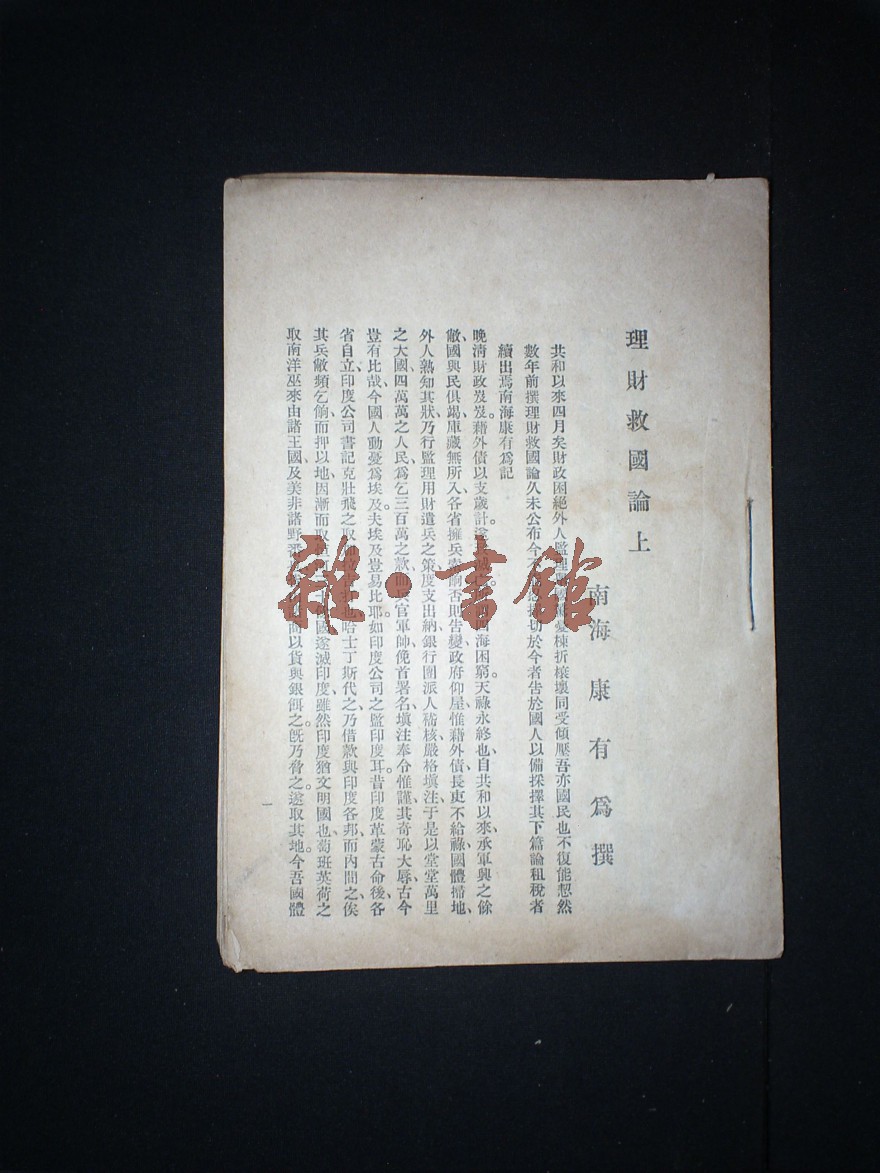 理財救國論上
南海康有爲撰
共和以來四月矣財政困絕外人監理棟折榱壞同受傾壓吾亦國民也不復能恝然
數年前撰理財救國論久未公布今切於今者告於國人以備採擇其下篇論租稅者
續出焉南海康有爲記
晚清財政岌岌。藉外債以支歲計。海困窮。天祿永終也、自共和以來、承軍興之餘
敝、國與民俱竭、庫藏無所入、各省擁兵索餉、否則告變、政府仰屋、惟藉外債、長吏不給祿、國體掃地、
外人熟知其狀、乃行監理用財遣兵之策、度支出納、銀行團派人稽核、嚴格填注、于是以堂堂萬里
之大國、四萬萬之人民、爲乞三百萬之款、而兵官軍帥、俛首署名、填注奉令惟謹、其奇恥大辱、古今
豈有比哉、今國人動憂爲埃及。夫埃及豈易比耶。如印度公司之監印度耳。昔印度革蒙古命後、各
省自立、印度公司書記克壯飛之取哈士丁斯代之、乃借款與印度各邦、而内間之、俟
其兵敝、頻乞餉、而押以地、因漸而取國、遂滅印度、雖然印度猶文明國也、葡班英荷之
取南洋巫來由諸王國、及美非諸野番商以貨與銀餌之。旣乃脅之。遂取其地。今吾國體
一
雜·書館